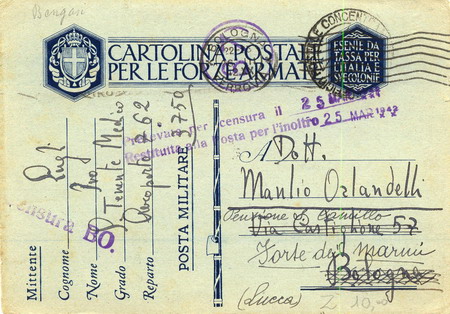 Bongar
CARTOLINA POSTALE
PER LE FORZE ARMATE
ESENTE DA
TASSA PER
L'ITALIA E
SUE COLONIE
BOLOGNA
FERROVIA
Prelevata per censura il 25 MAR 1942
Restituita alla Posta per l'inoltro 25 MAR 1942
Censura BO.
Mittente
Cognome Pugli
Nome
Grado S. Tenente Medico
Reparto Aeroporto 262
POSTA MILITARE 3750
A Dott.
Manlio Orlandelli
Pensione di Camillo
Via Castiglione 57
Forte dei Marmi
Bologna
(Lucca)
Z 10,00